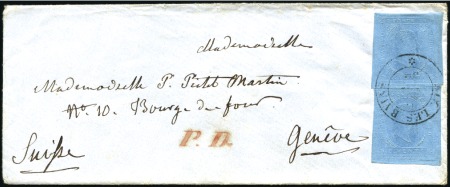 Mademoiselle
Mademoiselle P. Petit Martin
No. 10. Bourg de four.
P. D.
Suisse
Genève
LES BAINS